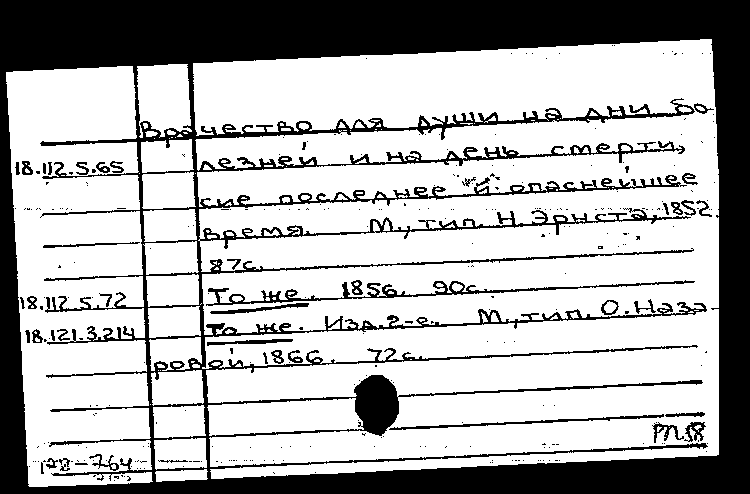 Врачество для души на дни бо-
18.112.5.65 лезней и на день смерти,
сие последнее и опаснейшее
время. М., тип. Н. Эрнста, 1852.
87с.
18.112.5.72 То же. 1856. 90с.
18.121.3.214 То же. Изд. 2-е. М., тип. О. Наза-
ровой, 1866. 72с.